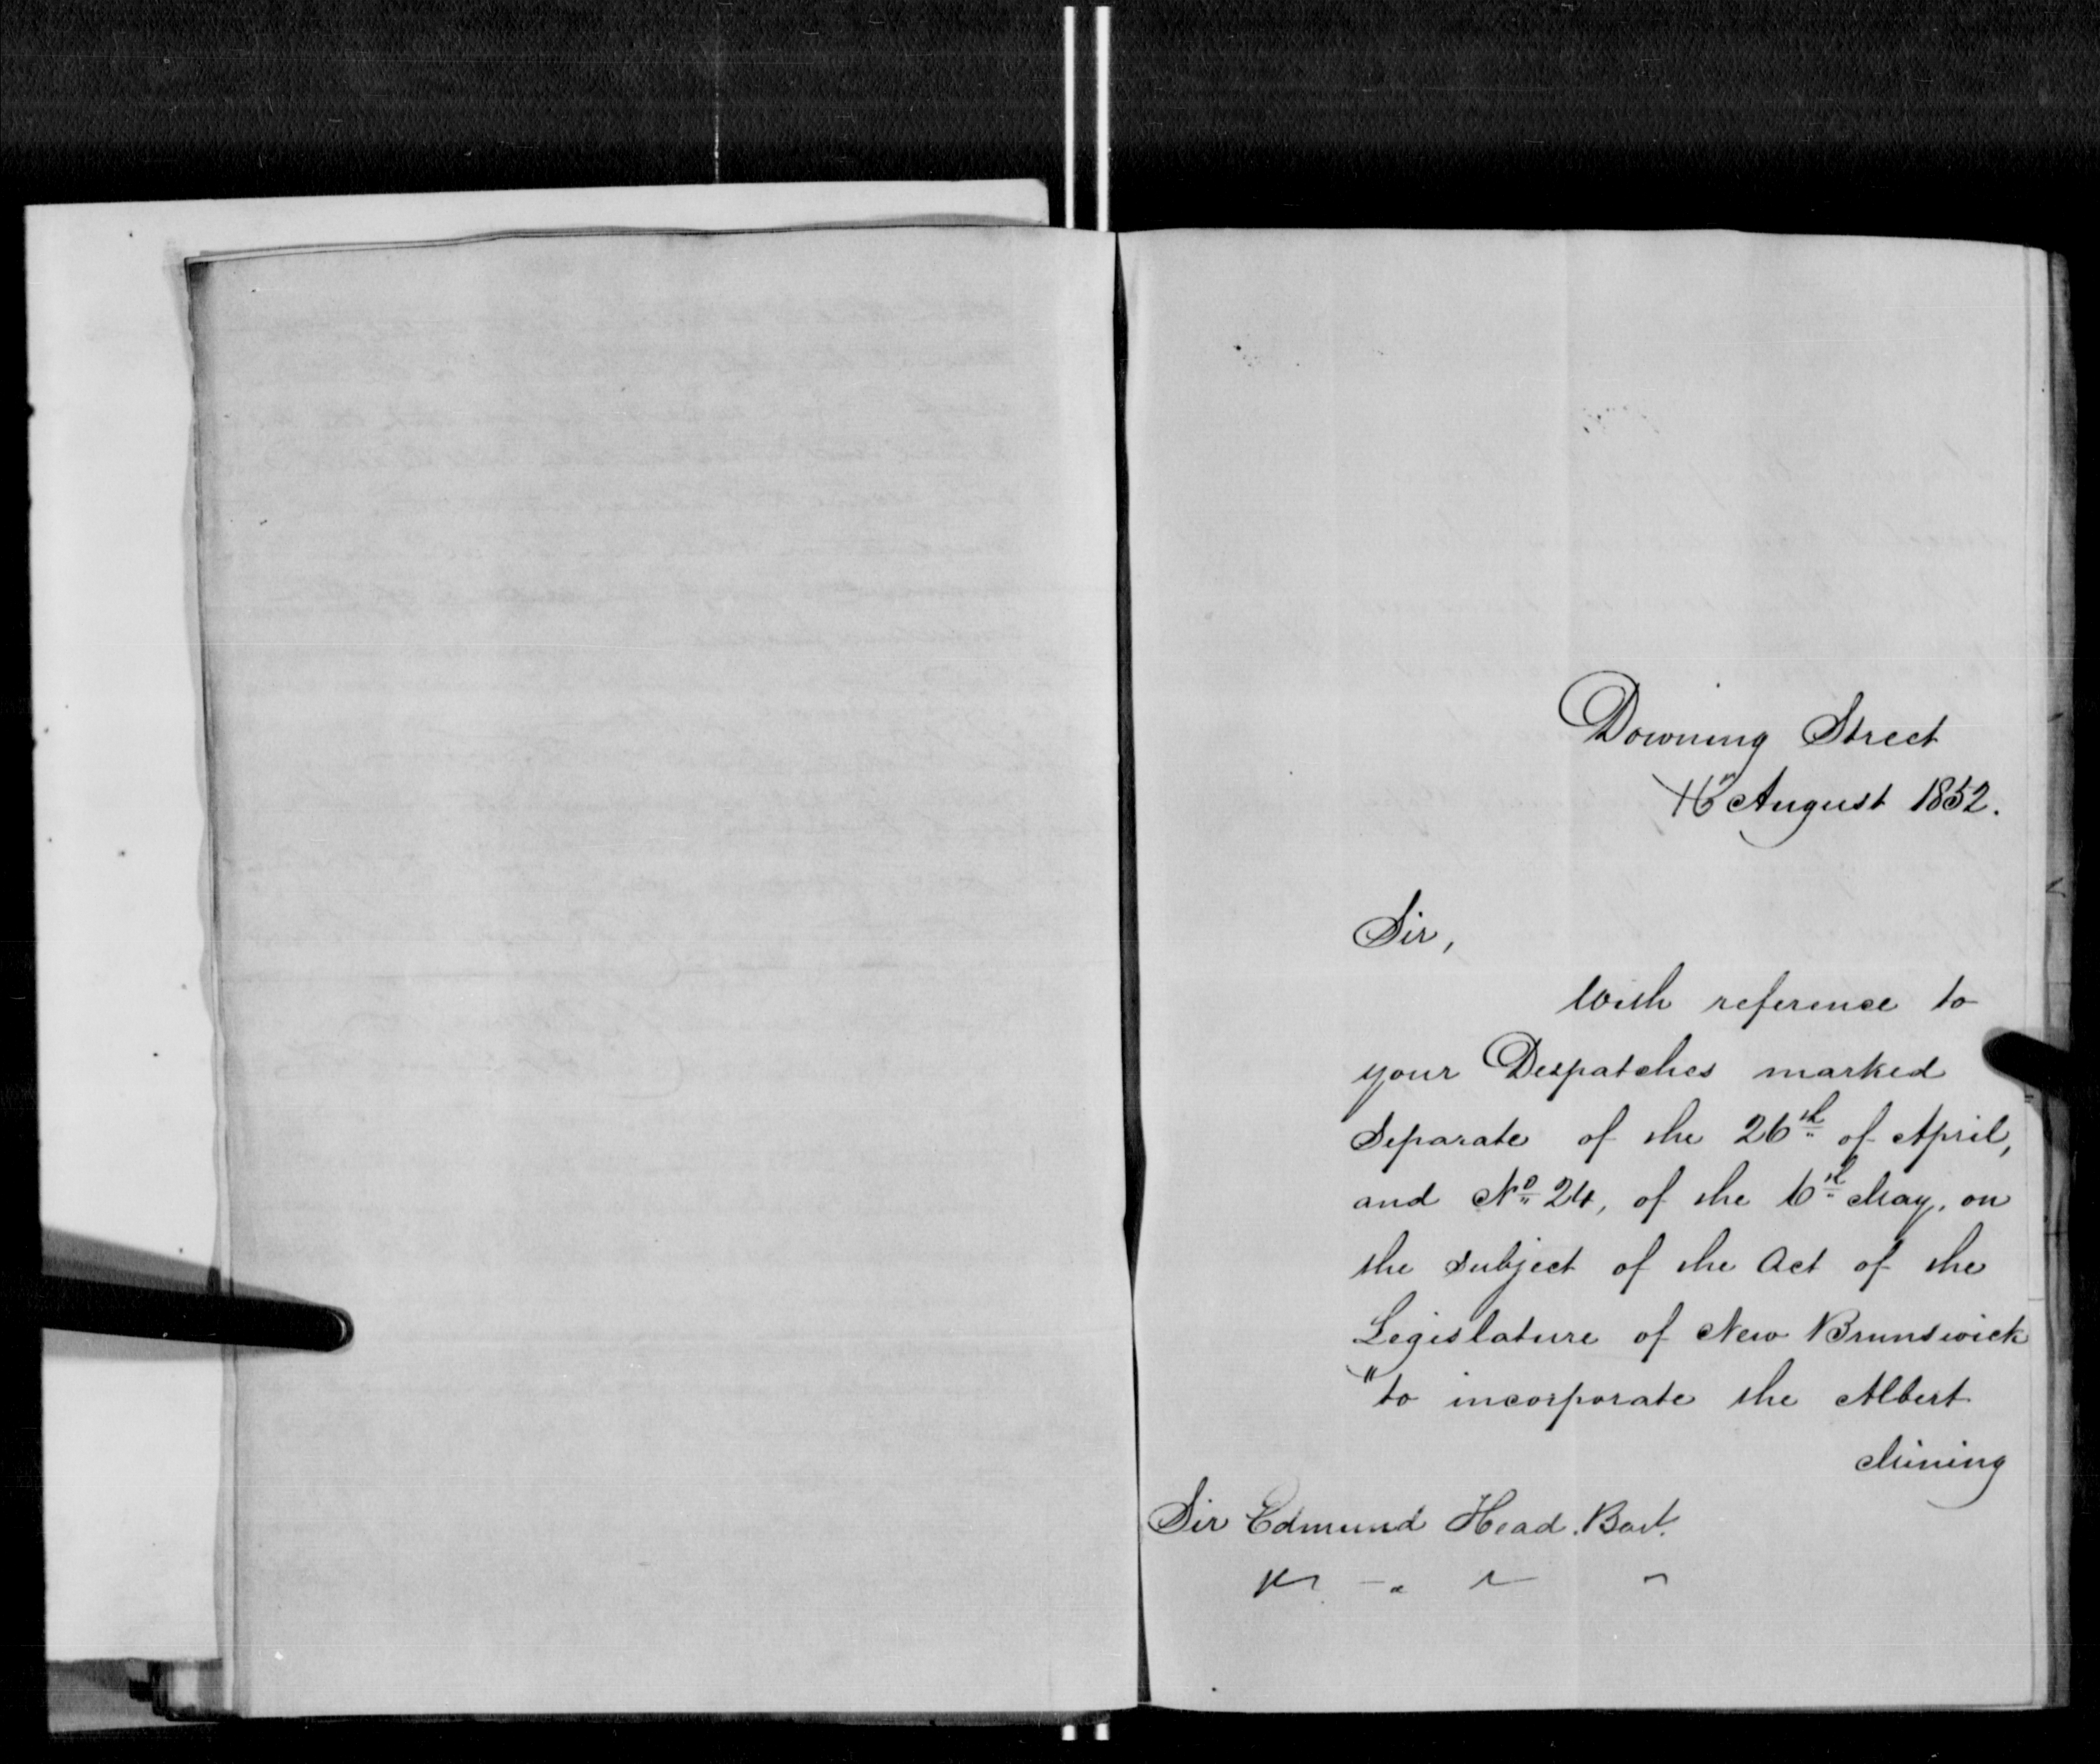 Downing Street
16th August 1852.
Sir,
With reference to
your Despatches marked
Separate of the 26th of April,
and No 24, of the 6th May, on
the subject of the Act of the
Legislature of New Brunswick
"to incorporate the Albert
Mining
Sir Edmund Head. Bart.